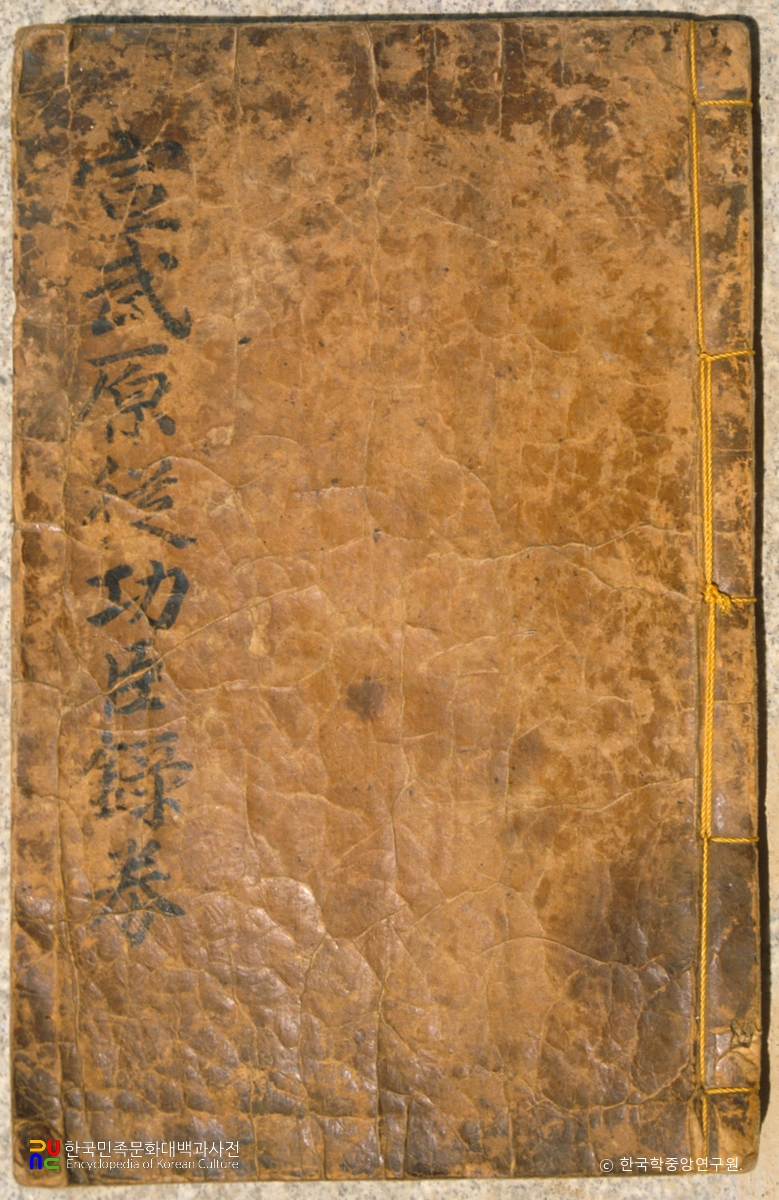 宣武原從功臣錄券
한국민족문화대백과사전
Encyclopedia of Korean Culture
ⓒ 한국학중앙연구원